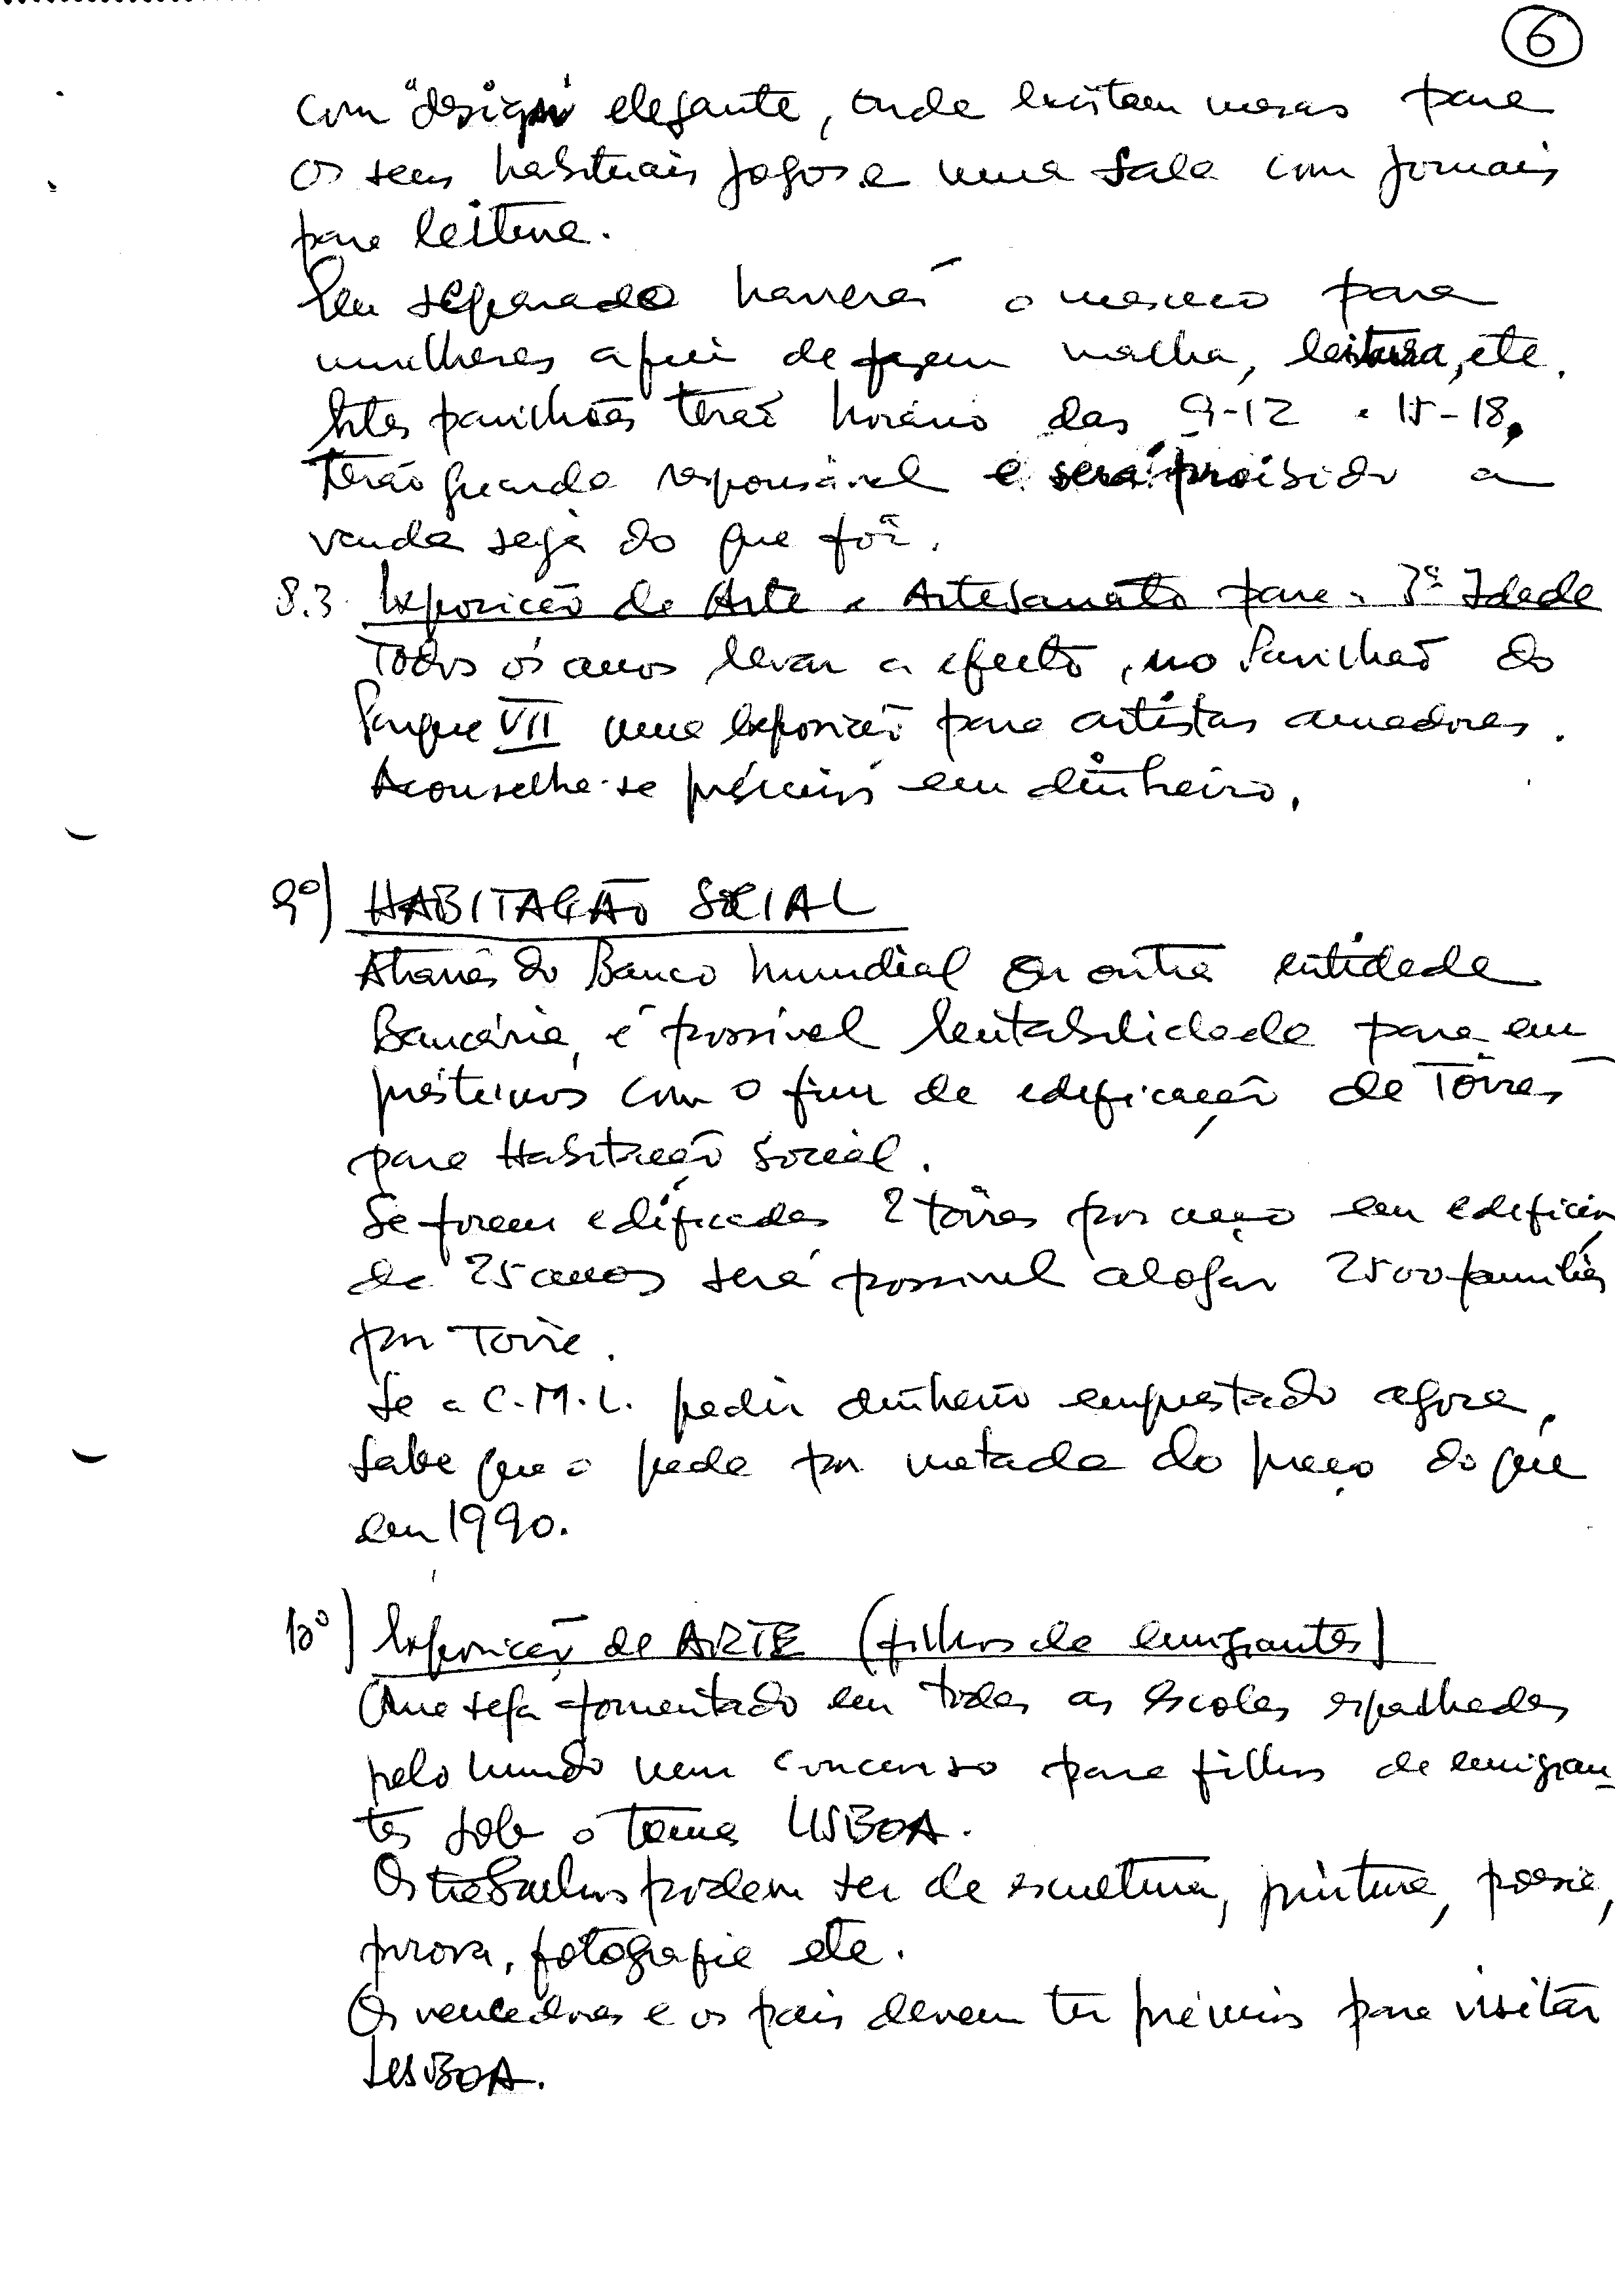 6
com "design" elegante, onde existem mesas para
os seus habituais jogos e uma sala com jornais
para leitura.
Em separado haverá o mesmo para
mulheres a fim de fazerem malha, leitura, etc.
Estes pavilhões terão horário das 9-12 e 15-18,
terão guarda responsável e será proibido a
venda seja do que fôr.
8.3 Exposição de Arte e Artesanato para a 3ª Idade
Todos os anos levar a efeito, no Pavilhão do
Parque VII uma exposição para artistas amadores.
Aconselha-se prémios em dinheiro.
9º) HABITAÇÃO SOCIAL
Através do Banco Mundial ou outra entidade
Bancária, é possível rentabilidade para em
préstimos com o fim de edificação de Torres
para Habitação Social.
Se forem edificadas 2 torres por ano em
de 25 anos será possível alojar 2500 familias
por Torre.
Se a C.M.L. pedir dinheiro emprestado agora,
sabe que o pede por metade do preço do que
em 1990.
10º) Exposição de ARTE (filhos de emigrantes)
Que seja fomentado em todas as escolas espalhadas
pelo mundo um concurso para filhos de emigran-
tes sob o tema LISBOA.
Os trabalhos podem ser de escultura, pintura, poesia,
prosa, fotografia etc.
Os vencedores e os pais devem ter prémios para visitar
LISBOA.